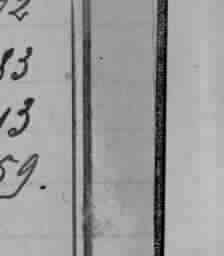 2
33
13
59.